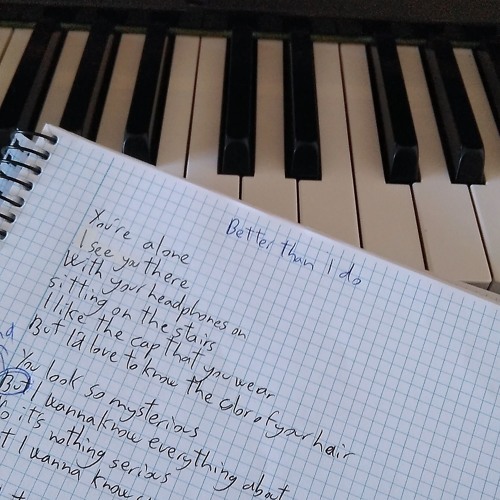 Better than I do
You're alone
I see you there
With your headphones on
sitting on the stairs
I like the cap that you wear
But I'd love to know the color of your hair
You look so mysterious
But I wanna know everything about
it's nothing serious
I wanna know